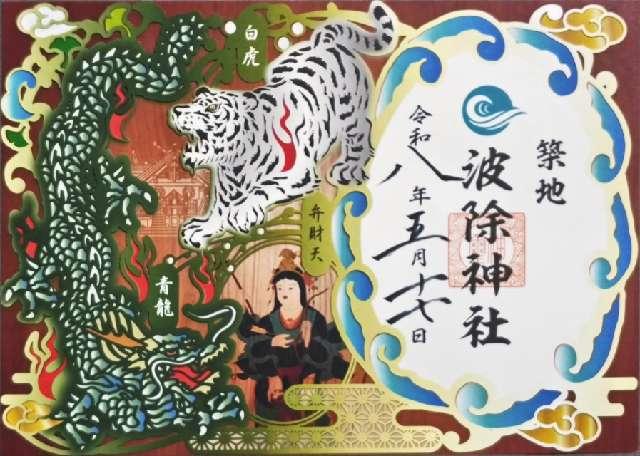 築地
波除神社
令和八年五月十七日
白虎
弁財天
青龍